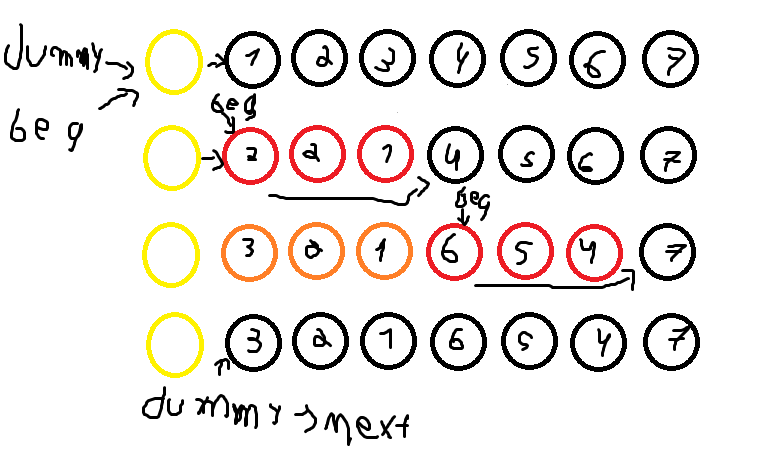 dummy
1 2 3 4 5 6 7
beg
beg
3 2 1 4 5 6 7
beg
3 2 1 6 5 4 7
3 2 1 6 5 4 7
dummy → next